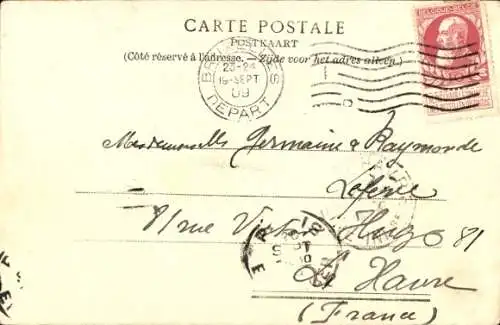 CARTE POSTALE
POSTKAART
(Côté réservé à l'adresse. — Zijde voor het adres alleen.)
BELGIQUE-BELGIË
BRUXELLES
23-24
SEPT
09
DEPART
Mesdemoiselles Germaine & Raymonde
81 rue Victor Hugo 81
Le Havre
(France)